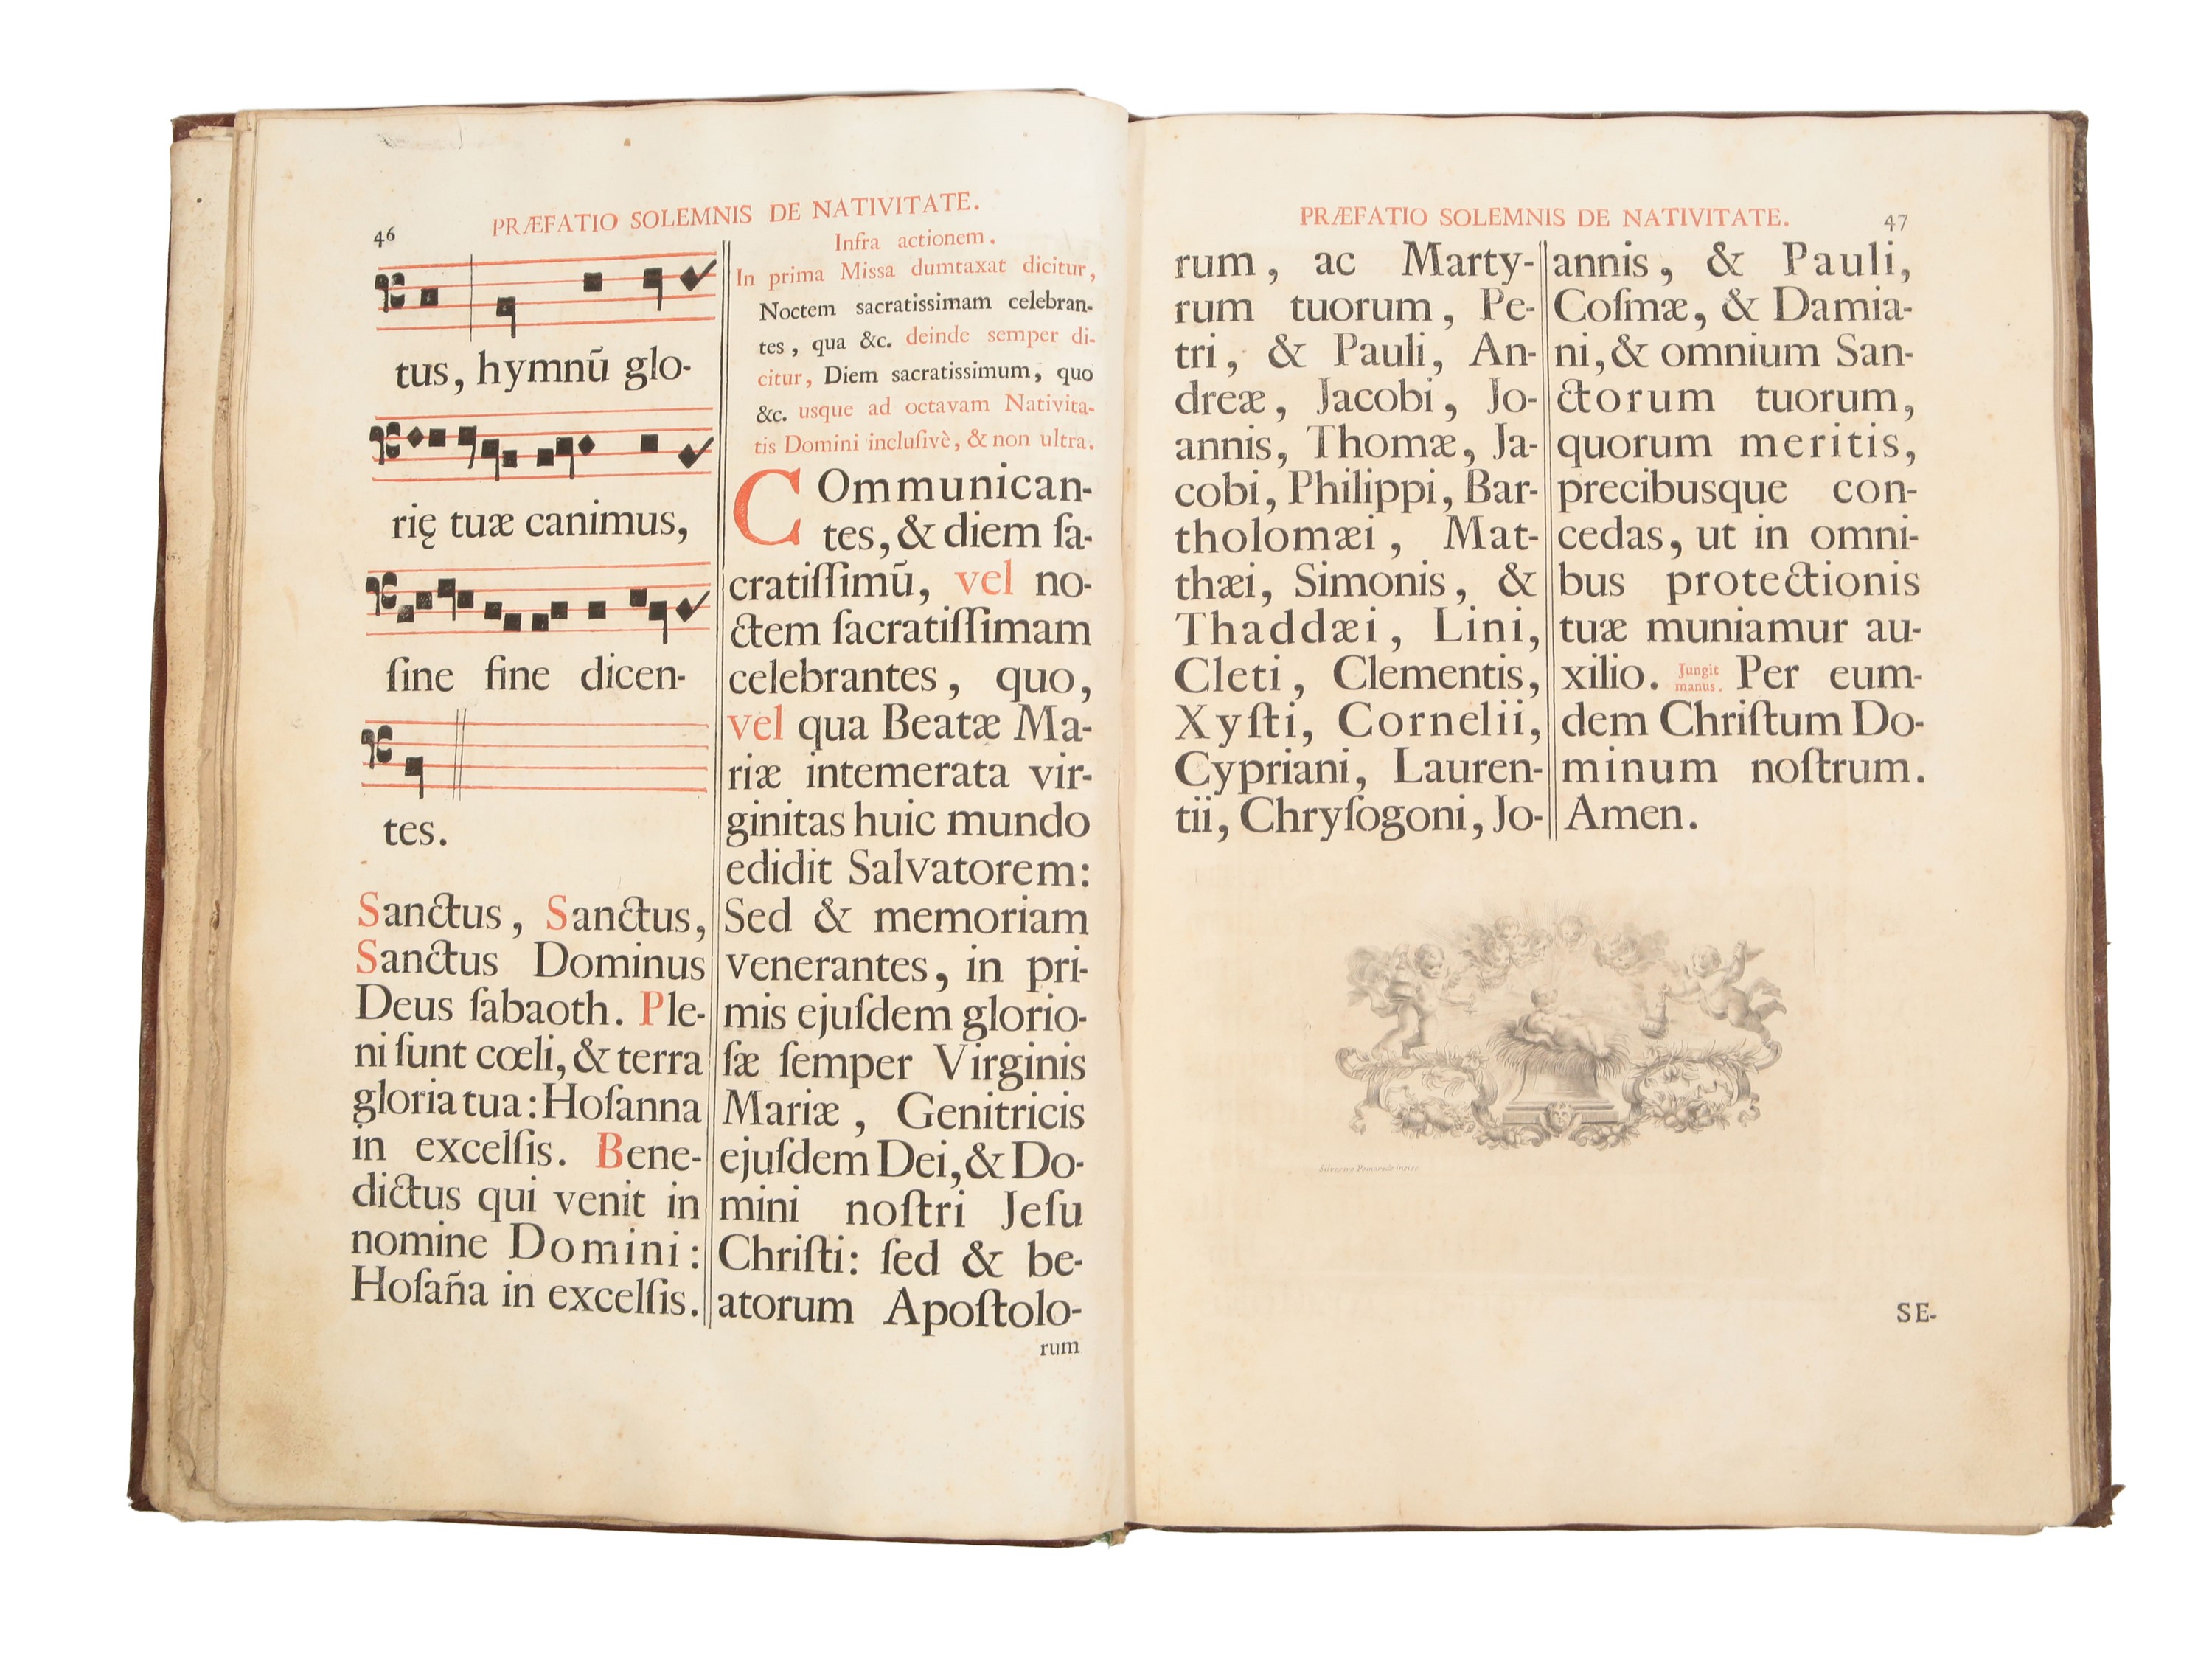 46
PRÆFATIO SOLEMNIS DE NATIVITATE.
tus, hymnū glo-
rię tuæ canimus,
ſine fine dicen-
tes.
Sanctus, Sanctus,
Sanctus Dominus
Deus ſabaoth. Ple-
ni ſunt cœli, & terra
gloria tua: Hoſanna
in excelſis. Bene-
dictus qui venit in
nomine Domini:
Hoſan̄a in excelſis.
Infra actionem.
In prima Missa dumtaxat dicitur,
Noctem sacratissimam celebran-
tes, qua &c. deinde semper di-
citur, Diem sacratissimum, quo
&c. usque ad octavam Nativita-
tis Domini incluſivè, & non ultra.
COmmunican-
tes, & diem ſa-
cratiſſimū, vel no-
ctem ſacratiſſimam
celebrantes, quo,
vel qua Beatæ Ma-
riæ intemerata vir-
ginitas huic mundo
edidit Salvatorem:
Sed & memoriam
venerantes, in pri-
mis ejuſdem glorio-
ſæ ſemper Virginis
Mariæ, Genitricis
ejuſdem Dei, & Do-
mini noſtri Jeſu
Chriſti: ſed & be-
atorum Apoſtolo-
rum
PRÆFATIO SOLEMNIS DE NATIVITATE.
47
rum, ac Marty-
rum tuorum, Pe-
tri, & Pauli, An-
dreæ, Jacobi, Jo-
annis, Thomæ, Ja-
cobi, Philippi, Bar-
tholomæi, Mat-
thæi, Simonis, &
Thaddæi, Lini,
Cleti, Clementis,
Xyſti, Cornelii,
Cypriani, Lauren-
tii, Chryſogoni, Jo-
annis, & Pauli,
Coſmæ, & Damia-
ni, & omnium San-
ctorum tuorum,
quorum meritis,
precibusque con-
cedas, ut in omni-
bus protectionis
tuæ muniamur au-
xilio. Jungit manus. Per eum-
dem Chriſtum Do-
minum noſtrum.
Amen.
SE-